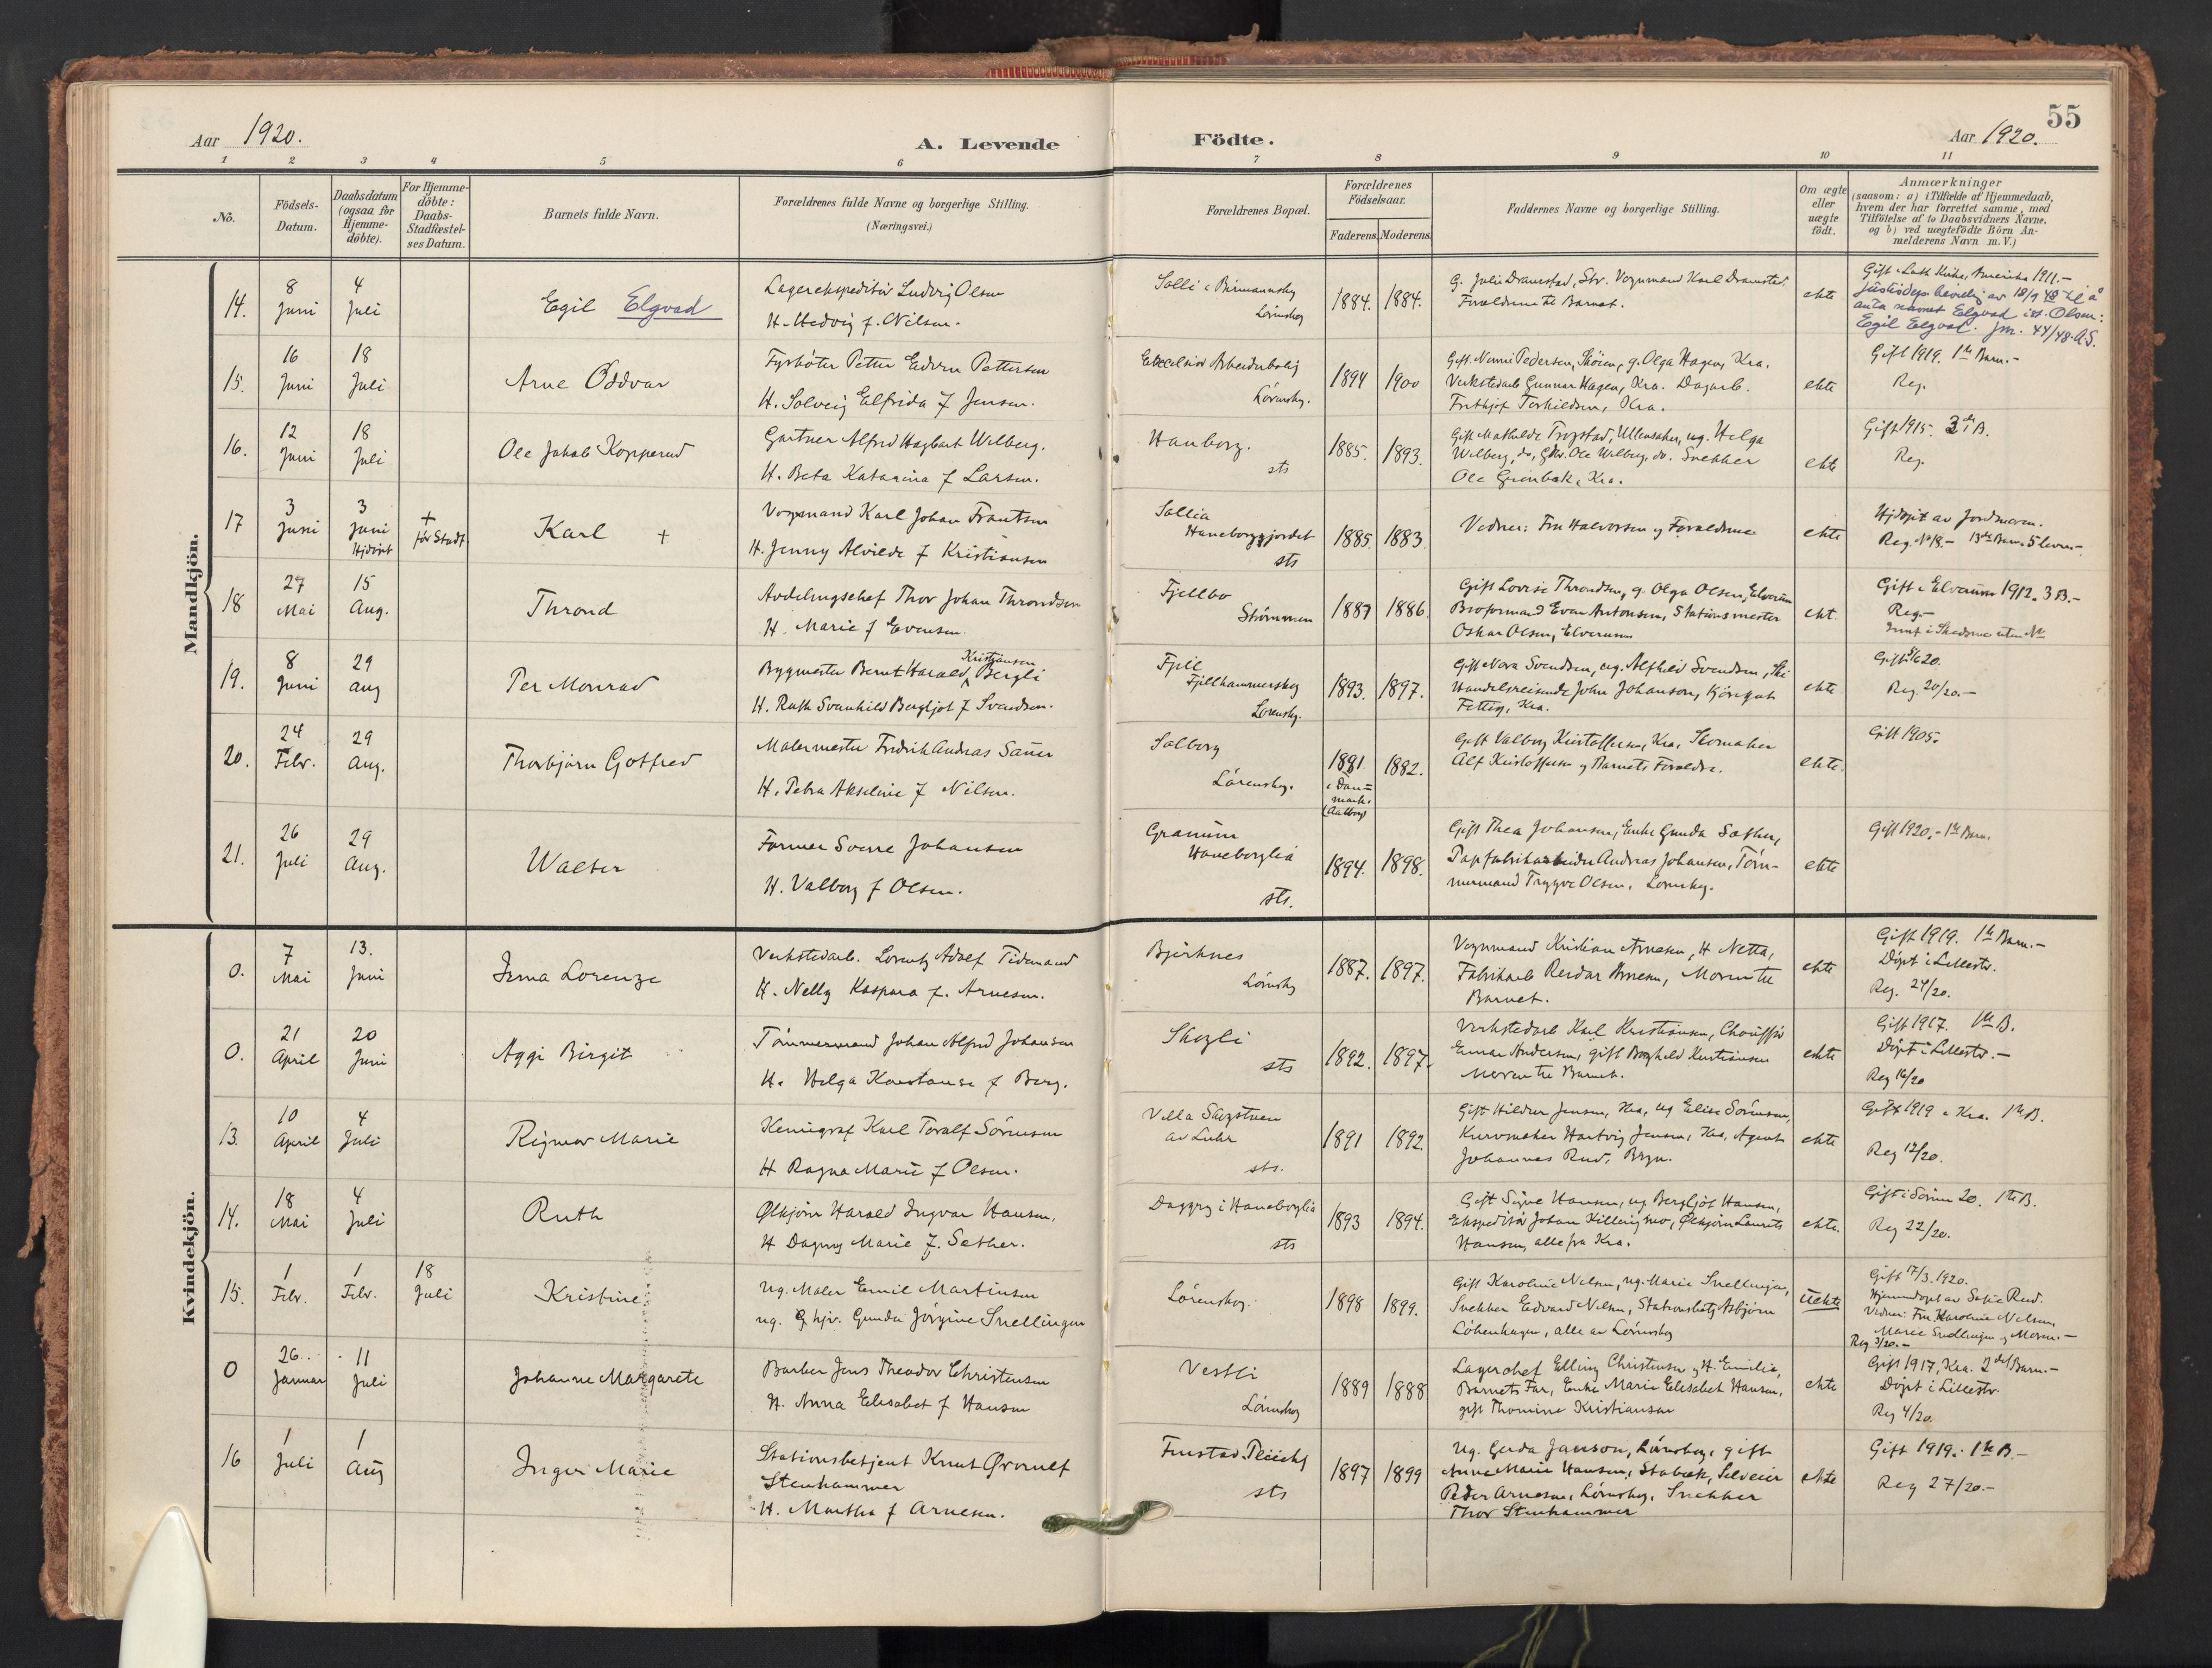 Aar 1920.
A. Levende Födte.
Aar 1920.
55
1 2 3 4 5 6 7 8 9 10 11
No.
Födsels-Datum.
Daabsdatum (ogsaa for Hjemme-döbte).
For Hjemme-döbte: Daabs-Stadfæstel-ses Datum.
Barnets fulde Navn.
Forældrenes fulde Navne og borgerlige Stilling.
(Næringsvei.)
Forældrenes Bopæl.
Forældrenes Födselsaar.
Faderens. Moderens.
Faddernes Navne og borgerlige Stilling.
Om ægte eller uægte födt.
Anmærkninger
(saasom: a) i Tilfælde af Hjemmedaab,
hvem der har forrettet samme, med
Tilföielse af to Daabsvidners Navne,
og b) ved uægtefödte Börn An-
melderens Navn m. V.)
Mandkjön.
14. 8 Juni 4 Juli
Egil Elgvad
Lagerekspeditør Ludvig Olsen
H. Hedvig f. Nilsen.
Solli i
Lörenskog
1884. 1884.
Forældrene til Barnet.
ekte
anta navnet Elgvad ist. Olsen:
Egil Elgvad. Jm. 44/48. A.S.
15. 16 Juni 18 Juli
Arne Oddvar
Fyrböter Petter Edvin Pettersen
H. Solveig Elfrida f Jensen.
Excelsior Arbeiderbolig
Lörenskog.
1894 1900
Gift Nanni Pedersen, Skøien, g. Olga Hagen, Kra.
Verkstedarb Gunnar Hagen, Kra. Dagarb.
Frithjof Torkildsen, Kra.
ekte
Gift 1919. 1ste Barn.-
Reg.
16. 12 Juni 18 Juli
Ole Jakob Kopperud
Gartner Alfred Hagbart Wilberg.
H. Beta Katarina f Larsen.
Hauborg.
sts
1885. 1893.
Gift Mathilde Trogstad, Ullensaker, ug. Helga
Wilberg, do, Gbr. Ole Wilberg, do. Snekker
Ole Grønbæk, Kra.
ekte
Gift 1915. 3die B.
Reg.
17 3 Juni 3 Juni Hjdöpt + för Stadf.
Karl +
Vognmand Karl Johan Frantsen
H. Jenny Alvilde f Kristiansen
Sollia
Haneborgjordet
sts
1885 1883
Vidner: Fru Halvorsen og Forældrene
ekte
Hjdöpt av Jordmoren.
Reg. No 18.- 13de Barn. 5 lever.-
18 27 Mai 15 Aug.
Thrond
Avdelingschef Thor Johan Throndsen
H. Marie f Evensen.
Fjellbo
Strömmen
1887 1886
Gift Lovise Throndsen, g. Olga Olsen, Elverum
Broformand Evan Antonsen, Stationsmester
Oskar Olsen, Elverum
ekt.
Gift i Elverum 1912. 3 B.-
Reg.-
19. 8 Juni 29 Aug
Per Monrad
Kristiansen
Bygmester Bernt Harald Bergli
H. Ruth Svanhild Bergljot f Svendsen.
Fjell
Fjellhammerskog
Lörenskog.
1893. 1897.
Gift Nora Svendsen, ug. Alfhild Svendsen, Ski
Handelsreisende John Johanson,
Kra.
ekte
Reg. 20/20.-
20. 24 Febr. 29 Aug.
Thorbjörn Gotfred
Malermester Fredrik Andreas Sauer
H. Petra Akseline f Nilsen.
Solborg
Lörenskog.
1881 i Dan-mark. (Aalborg) 1882.
Gift Valborg Kristoffersen, Kra, Skomaker
Alf Kristoffersen og Barnets Forældre.
ekte.
Gift 1905.
21. 26 Juli 29 Aug.
Walter
Former Sverre Johansen
H. Valborg f Olsen.
Granum
Haneborglia
sts.
1894. 1898.
Gift Thea Johansen, Enke Gunda Sæther,
Papfabrikarbeider Andreas Johansen, Töm-
mermand Trygve Olsen, Lörenskog.
ekte
Gift 1920.- 1ste Barn.
Kvindekjön.
0. 7 Mai 13. Juni
Irma Lorenze
Verkstedarb. Lorentz Adolf Tidemand
H. Nelly Kaspara f. Arnesen.
Björknes
Lörenskog
1887. 1897.
Vognmand Kristian Arnesen, H Netta,
Fabrikarb Reidar Arnesen, Moren til
Barnet.
ekte
Gift 1919. 1ste Barn.-
Döpt i Lillestr.
Reg. 24/20.
0. 21 April 20 Juni
Aggi Birgit
Tömmermand Johan Alfred Johansen
H. Helga Konstanse f Berg.
Skogli
sts
1892. 1897.
Verkstedarb Karl Kristiansen, Chauffør
Einar Andersen, gift Borghild Kristiansen
Moren til Barnet.
ekte
Gift 1917. 1ste B.
Döpt i Lillestr.-
Reg 16/20
13. 10 April 4 Juli
Rigmor Marie
Kemigraf Karl Toralf Sörensen
H Ragna Marie f Olsen.
Villa Skogstuen
av Luhr
sts.
1891 1892.
Gift Hildur Jensen, Kra, ug Elise Sörensen,
Kurvmaker Hartvig Jensen, Kra, Agent
Johannes Rud, Bryn.
ekte
Gift 1919 i Kra. 1ste B.
Reg 12/20.
14. 18 Mai 4 Juli
Ruth
Ølkjörer Harald Ingvar Hansen,
H Dagny Marie f. Sæther.
Dagny i Haneborglia
sts
1893 1894.
Gift Signe Hansen, ug Bergljot Hansen,
Ekspeditør Johan Killingmo, Ølkjörer Laurits
Hansen, alle fra Kra.
ekte.
Reg 22/20.
15. 1 Febr. 1 Febr. 18 Juli
Kristine
Ug. Maler Emil Martinsen
ug. Hjv. Gunda Jörgine Snellingen
Lörenskog.
1898 1899.
Gift Karoline Nilsen, ug. Marie Snellingen,
Snekker Edvard Nilsen, Stationsbetj Asbjörn
Löhenhagen, alle av Lörenskog
Uekte
Gift 17/3. 1920.
Hjemmedöpt av Sofie Rud.
Vidner: Fru Karoline Nilsen,
Marie Snellingen og Moren.-
Reg 3/20.-
0 26. Januar 11 Juli
Johanne Margarete
Barber Jens Theodor Christensen
H. Anna Elisabet f Hansen
Vestli
Lörenskog
1889 1888
Lagerchef Elling Christensen og H. Emilie,
Barnets Far, Enke Marie Elisabet Hansen,
gift Thomine Kristiansen
ekte
Gift 1917, Kra. 2det Barn.-
Döpt i Lillestr.
Reg 4/20.
16 1 Juli 1 Aug
Inger Marie
Stationsbetjent Knut Ørnulf
Stenhammer
H. Martha f Arnesen.
Finstad
sts
1897 1899
Ug. Gerda Janson, Lörenskog, gift
Anne Marie Hansen, Stabæk,
Peder Arnesen, Lörenskog, Snekker
Thor Stenhammer
ekte
Gift 1919.- 1ste B.-
Reg 27/20.-